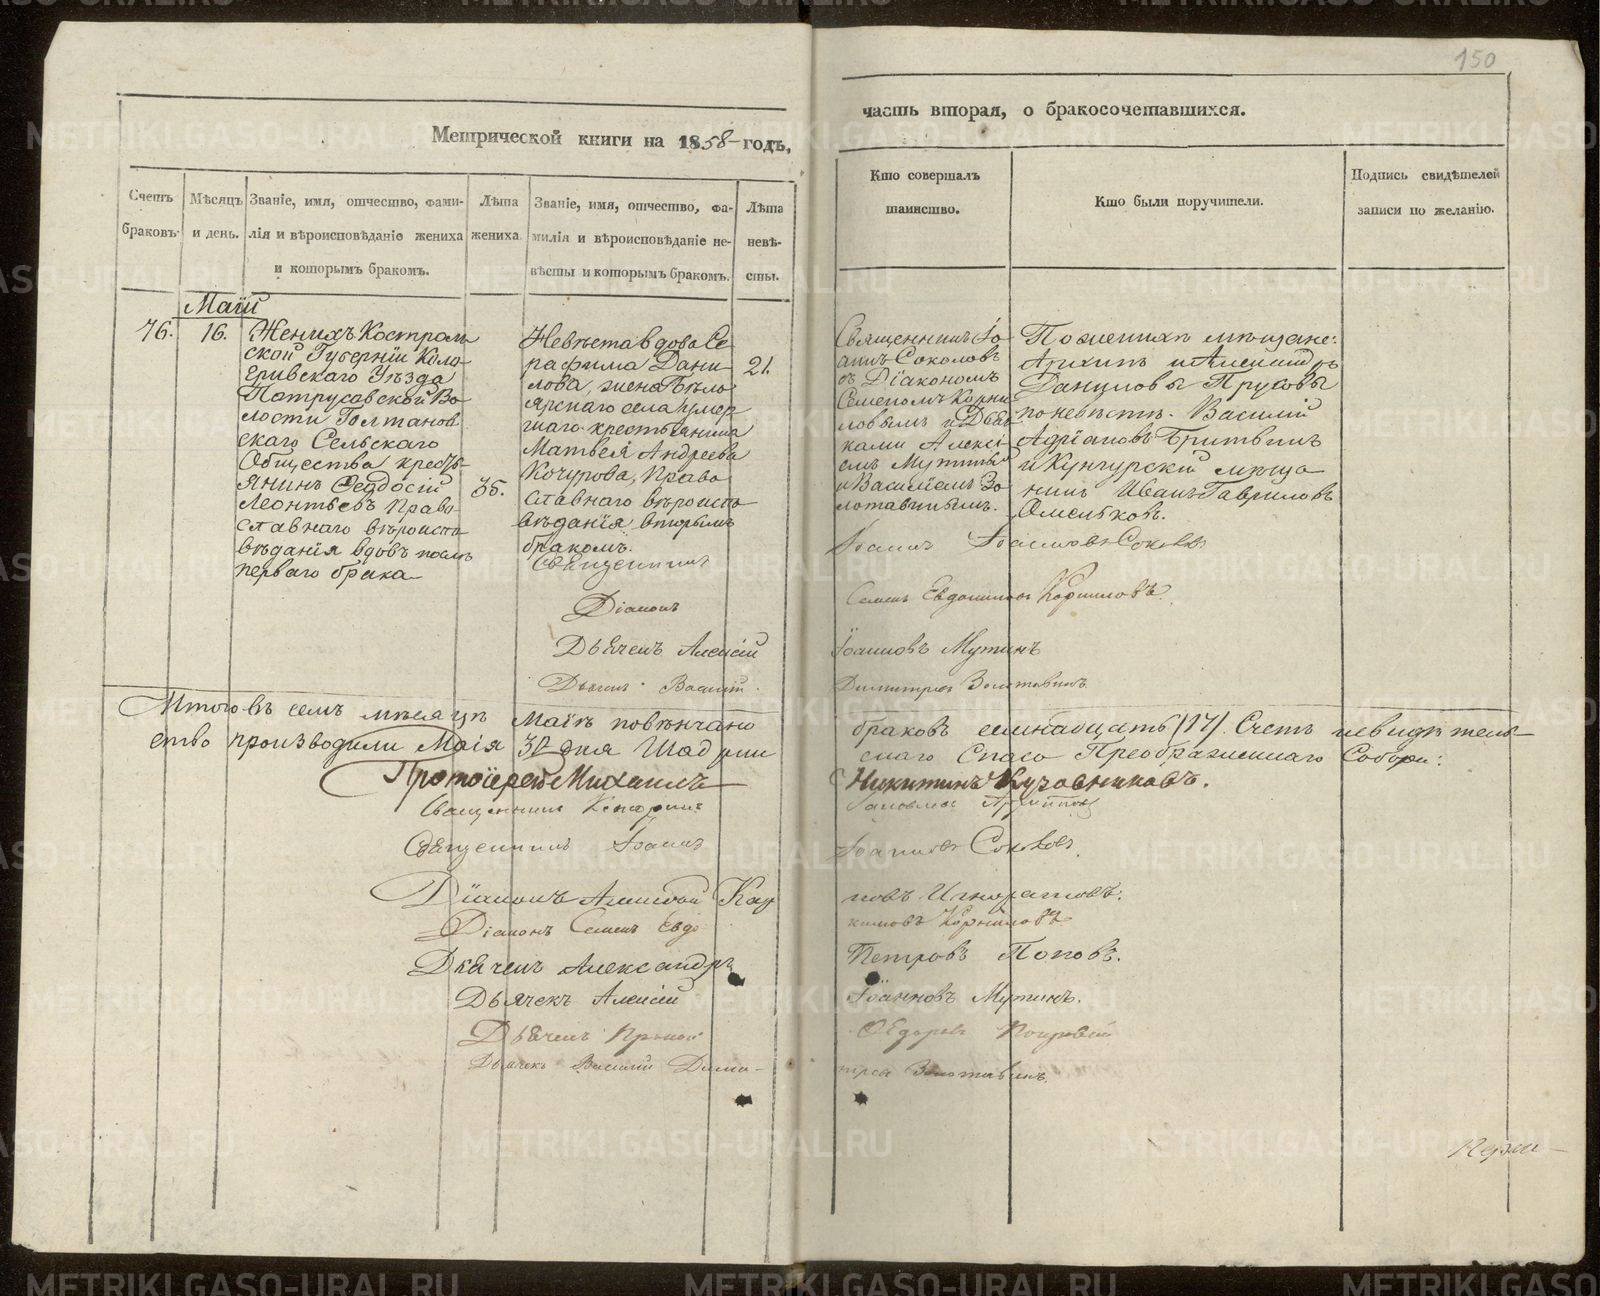 150
Метрической книги на 1858 годъ,
часть вторая, о бракосочетавшихся.
Счетъ браковъ.
Мѣсяцъ и день.
Званіе, имя, отчество, фами-
лія и вѣроисповѣданіе жениха
и которымъ бракомъ.
Лѣта жениха.
Званіе, имя, отчество, фа-
милія и вѣроисповѣданіе не-
вѣсты и которымъ бракомъ.
Лѣта невѣ-
сты.
Кто совершалъ
таинство.
Кто были поручители.
Подпись свидѣтелей
записи по желанію.
Маій
76.
16.
Женихъ Костром
ской Губерніи Коло
гривскаго Уѣзда
Потрусовской Во
лости Голтанов
скаго Сельскаго
Общества кресть
янинъ Ѳеодосій
Леонтьевъ Право
славнаго вѣроиспо
вѣданія вдовъ послѣ
перваго брака
35.
Невѣста вдова Се
рафима Дани
лова, жена Бѣло
ярскаго села умер
шаго крестьянина
Матвея Андреева
Кочурова, Право
славнаго вѣроиспо
вѣданія вторымъ
бракомъ.
21.
Священникъ Іо
аннъ Соколовъ
съ Діакономъ
Семеномъ Корни
ловымъ и Дьяч
ками Алексѣ
емъ Мутинъ
и Василіемъ Зо
лотавинымъ.
По женихѣ мѣщане:
Архипъ и Александръ
Даниловы Трусовы
по невѣстѣ. Василій
Адріановъ Бритвинъ
и Кунгурскій мѣща
нинъ Иванъ Гавриловъ
Омельковъ.
Священникъ Іоаннъ Іоанновъ Соколовъ
Діаконъ Семенъ Евдокимовъ Корниловъ
Дьячекъ Алексій Іоанновъ Мутинъ
Дьячекъ Василій Димитріевъ Золотавинъ
Итого въ семъ мѣсяцѣ Маіѣ повѣнчано браковъ семнадцать /17/. Счетъ и свидѣтель
ство производили Маія 30 дня Шадрин скаго Спасо Преображенскаго Собора:
Протоіерей Михаилъ Никитинъ Кузовниковъ.
Священникъ
Священникъ Іоаннъ Іоанновъ Соколовъ
Діаконъ Алексѣй Кар повъ Игноратовъ.
Діаконъ Семенъ Евдо кимовъ Корниловъ
Дьячекъ Александръ Петровъ Поповъ.
Дьячекъ Алексій Іоанновъ Мутинъ.
Дьячекъ Ѳедоровъ
Дьячекъ Василій Дими- тріевъ Золотавинъ
METRIKI.GASO-URAL.RU